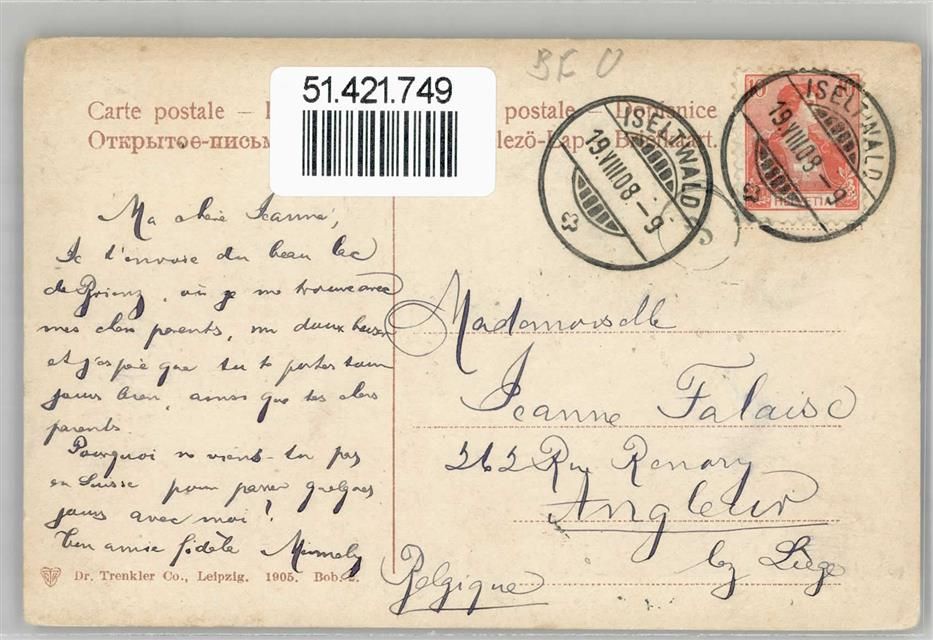 BE U
51.421.749
Carte postale – postale – Dopisnice
Открытое-письмо lező-Lap – Briefkaart.
ISELTWALD
19.VIII.08–9
ISELTWALD
19.VIII.08–9
10
HELVETIA
Ma chère Jeanne,
Je t'envoie du beau lac
de Brienz, où je me trouve avec
mes chers parents, un doux baiser
et j'espère que tu te portes tou
jours bien, ainsi que tes chers
parents.
Pourquoi ne viens-tu pas
en Suisse pour passer quelques
jours avec moi?
Ton amie fidèle
Mademoiselle
Jeanne Falaise
262 Rue Renory
Angleur
by Liège
Belgique
Dr. Trenkler Co., Leipzig. 1905. Bob. 2.